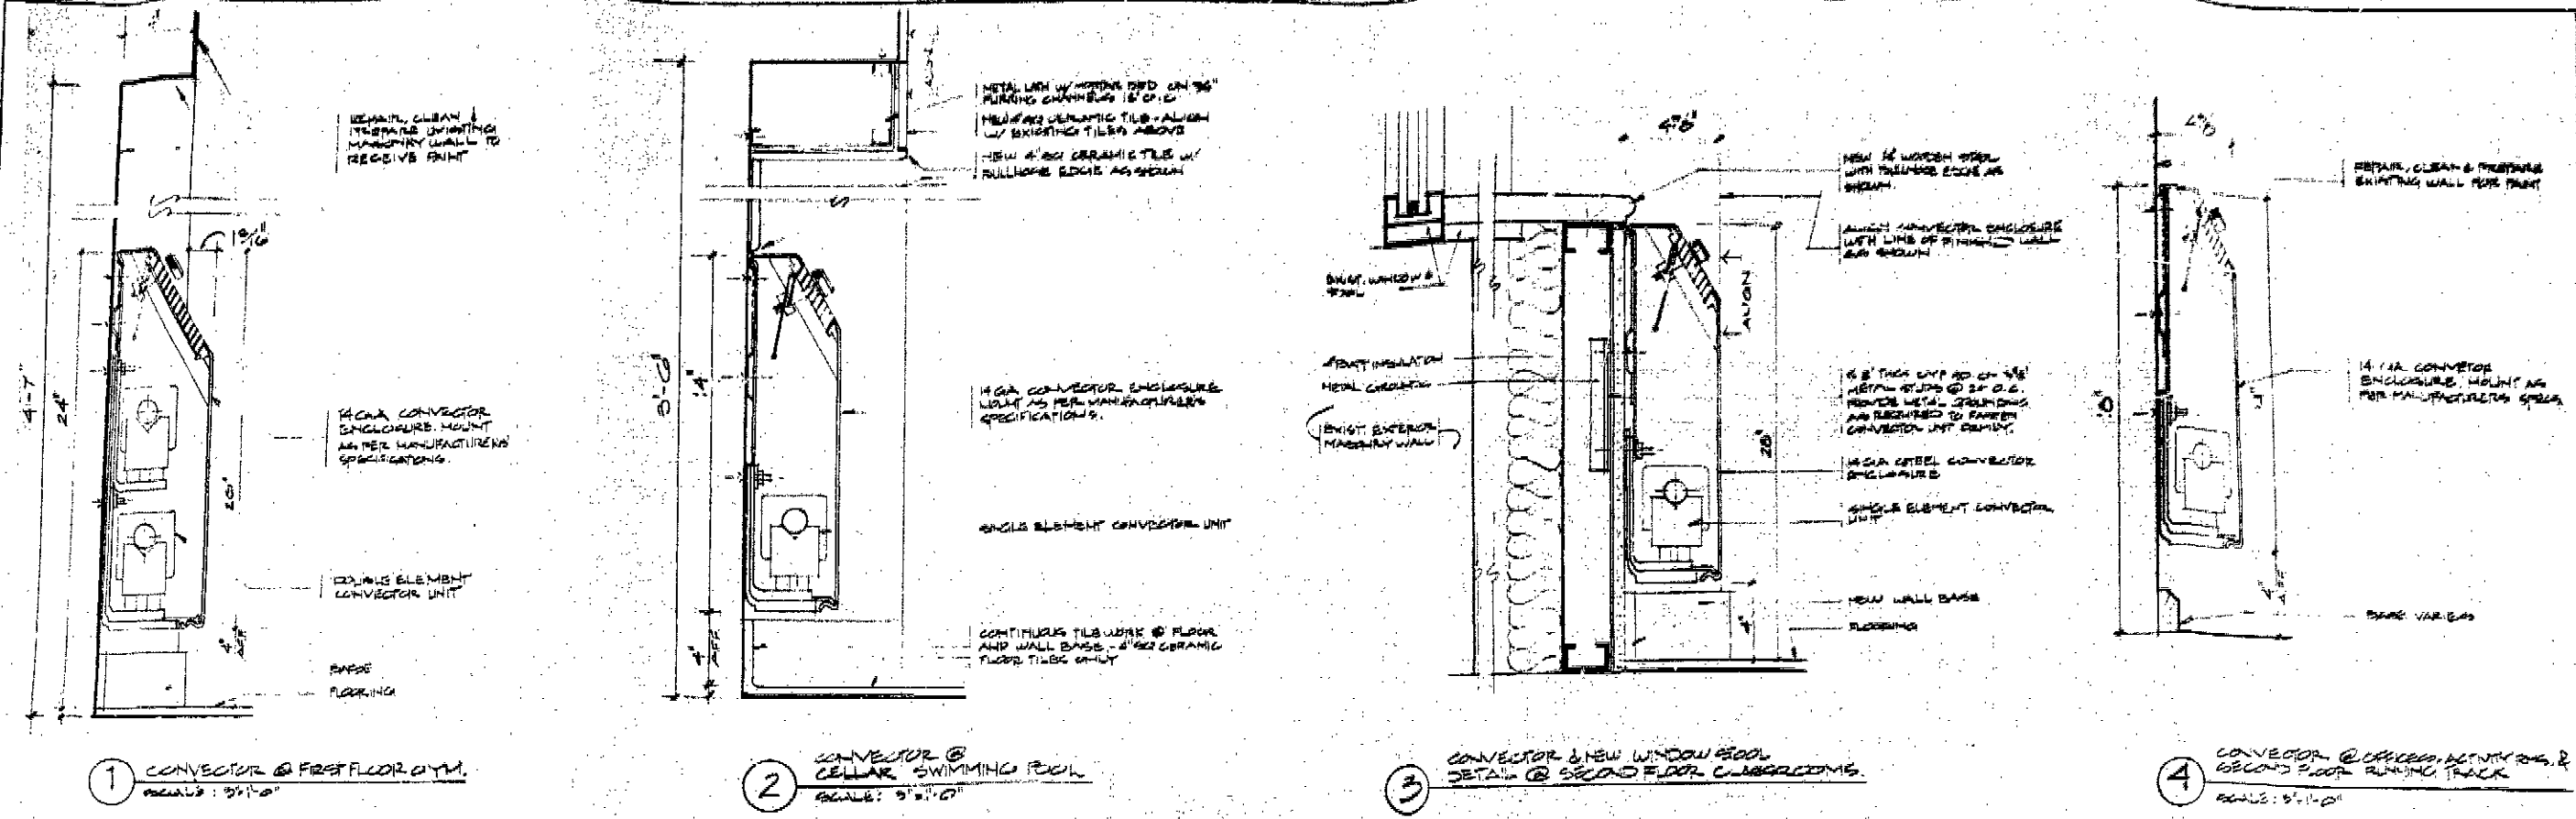 REPAIR, CLEAN &
PREPARE EXISTING
MASONRY WALL TO
RECEIVE PAINT
1 5/16"
4'-7"
24"
20"
14 GA. CONVECTOR
ENCLOSURE. MOUNT
AS PER MANUFACTURERS
SPECIFICATIONS.
DOUBLE ELEMENT
CONVECTOR UNIT
4"
AFF
BASE
FLOORING
1
CONVECTOR @ FIRST FLOOR GYM.
SCALE: 3"=1'-0"
METAL LATH W/ MORTAR BED ON
FURRING CHANNELS 16" O.C.
CERAMIC TILE - ALIGN
W/ EXISTING TILES ABOVE
NEW 4" SQ CERAMIC TILE W/
BULLNOSE EDGE AS SHOWN
3'-0"
14 GA. CONVECTOR ENCLOSURE
MOUNT AS PER MANUFACTURER'S
SPECIFICATIONS.
SINGLE ELEMENT CONVECTOR UNIT
4"
AFF
CONTINUOUS TILE WORK @ FLOOR
AND WALL BASE - 4" SQ CERAMIC
FLOOR TILES ONLY
2
CONVECTOR @
CELLAR SWIMMING POOL
SCALE: 3"=1'-0"
NEW WOODEN STOOL
WITH BULLNOSE EDGE AS
SHOWN.
ALIGN CONVECTOR ENCLOSURE
WITH LINE OF FINISHED WALL
AS SHOWN
EXIST. WINDOW &
STOOL
ALIGN
BATT INSULATION
METAL GROUNDS
EXIST EXTERIOR
MASONRY WALL
METAL STUDS @ 24" O.C.
PROVIDE METAL GROUNDING
AS REQUIRED TO FASTEN
CONVECTOR UNIT FIRMLY.
28"
14 GA STEEL CONVECTOR
ENCLOSURE
SINGLE ELEMENT CONVECTOR
UNIT
NEW WALL BASE
4"
FLOORING
3
CONVECTOR & NEW WINDOW STOOL
DETAIL @ SECOND FLOOR CLASSROOMS.
REPAIR, CLEAN & PREPARE
EXISTING WALL FOR PAINT
14 GA. CONVECTOR
ENCLOSURE, MOUNT AS
PER MANUFACTURERS SPECS.
BASE VARIES
4
CONVECTOR @ OFFICES, ACTIVITY RMS. &
SECOND FLOOR RUNNING TRACK
SCALE: 3"=1'-0"